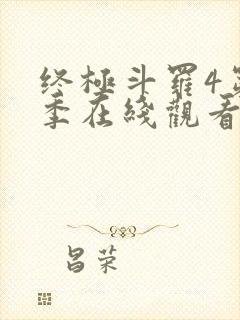 终極斗羅4第
季在綫觀看
昌荣